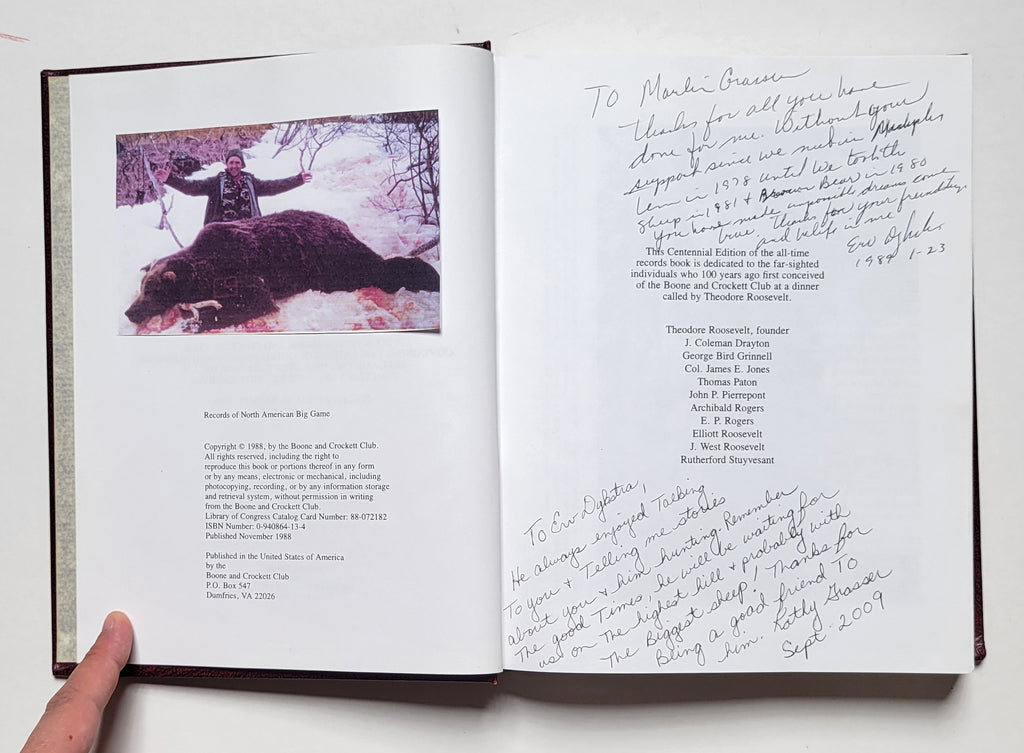 Records of North American Big Game
Copyright © 1988, by the Boone and Crockett Club.
All rights reserved, including the right to
reproduce this book or portions thereof in any form
or by any means, electronic or mechanical, including
photocopying, recording, or by any information storage
and retrieval system, without permission in writing
from the Boone and Crockett Club.
Library of Congress Catalog Card Number: 88-072182
ISBN Number: 0-940864-13-4
Published November 1988
Published in the United States of America
by the
Boone and Crockett Club
P.O. Box 547
Dumfries, VA 22026
TO Marlin Grasser
Thanks for all you have
done for me. Without your
support since we met in
in 1978 until we took the
sheep in 1981 & Brown Bear in 1980
you have made impossible dreams come
true. Thanks for your friendship
and belife in me
Erv Dykstra
1989 1-23
This Centennial Edition of the all-time
records book is dedicated to the far-sighted
individuals who 100 years ago first conceived
of the Boone and Crockett Club at a dinner
called by Theodore Roosevelt.
Theodore Roosevelt, founder
J. Coleman Drayton
George Bird Grinnell
Col. James E. Jones
Thomas Paton
John P. Pierrepont
Archibald Rogers
E. P. Rogers
Elliott Roosevelt
J. West Roosevelt
Rutherford Stuyvesant
To Erv Dykstra,
He always enjoyed Talking
To you & Telling me stories
about you & him hunting. Remember
The good Times, he will be waiting for
us on The highest hill & probably with
The Biggest sheep! Thanks for
Being a good friend To
him. Kathy Grasser
Sept. 2009